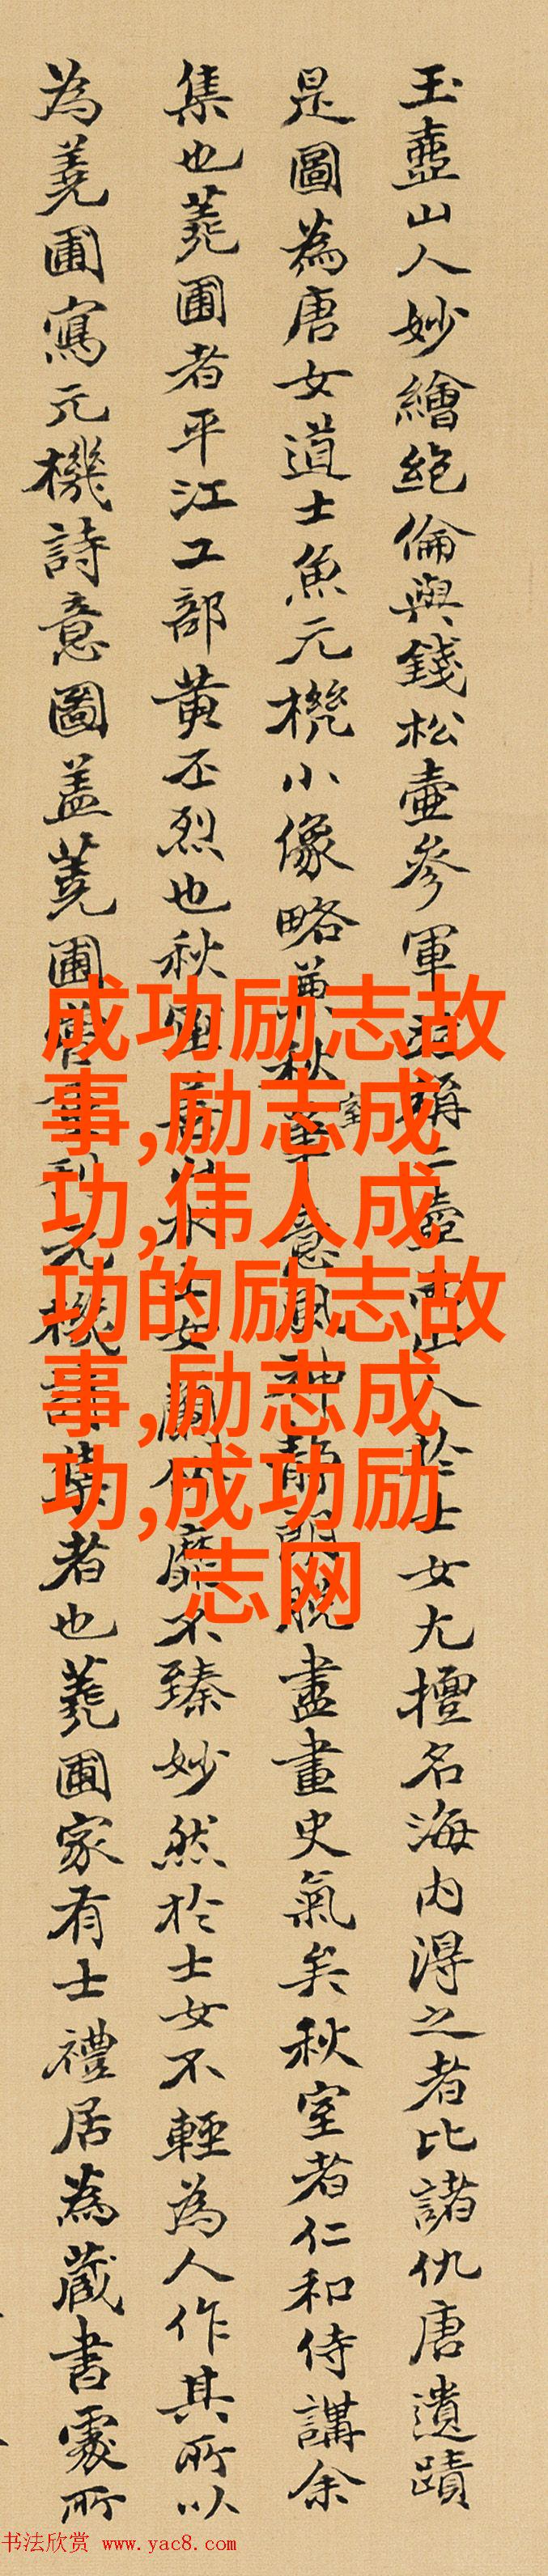 玉壺山人妙繪絶倫與錢松壺參軍稱二壺山人於士女尤擅名海内得之者比諸仇唐遺蹟
是圖為唐女道士魚元機小像略兼秋室意風神静脱盡畫史氣矣秋室者仁和侍講余
集也蕘圃者平江工部黄丕烈也秋室女靡不臻妙然於士女不輕為人作其所以
為蕘圃寫元機詩意圖盖蕘圃元機詩集者也蕘圃家有士禮居為藏書處所
成功励志故
事,励志成
功,伟人成
功的励志故
事,励志成
功,成功励
志网
书法欣赏 www.yac8.com